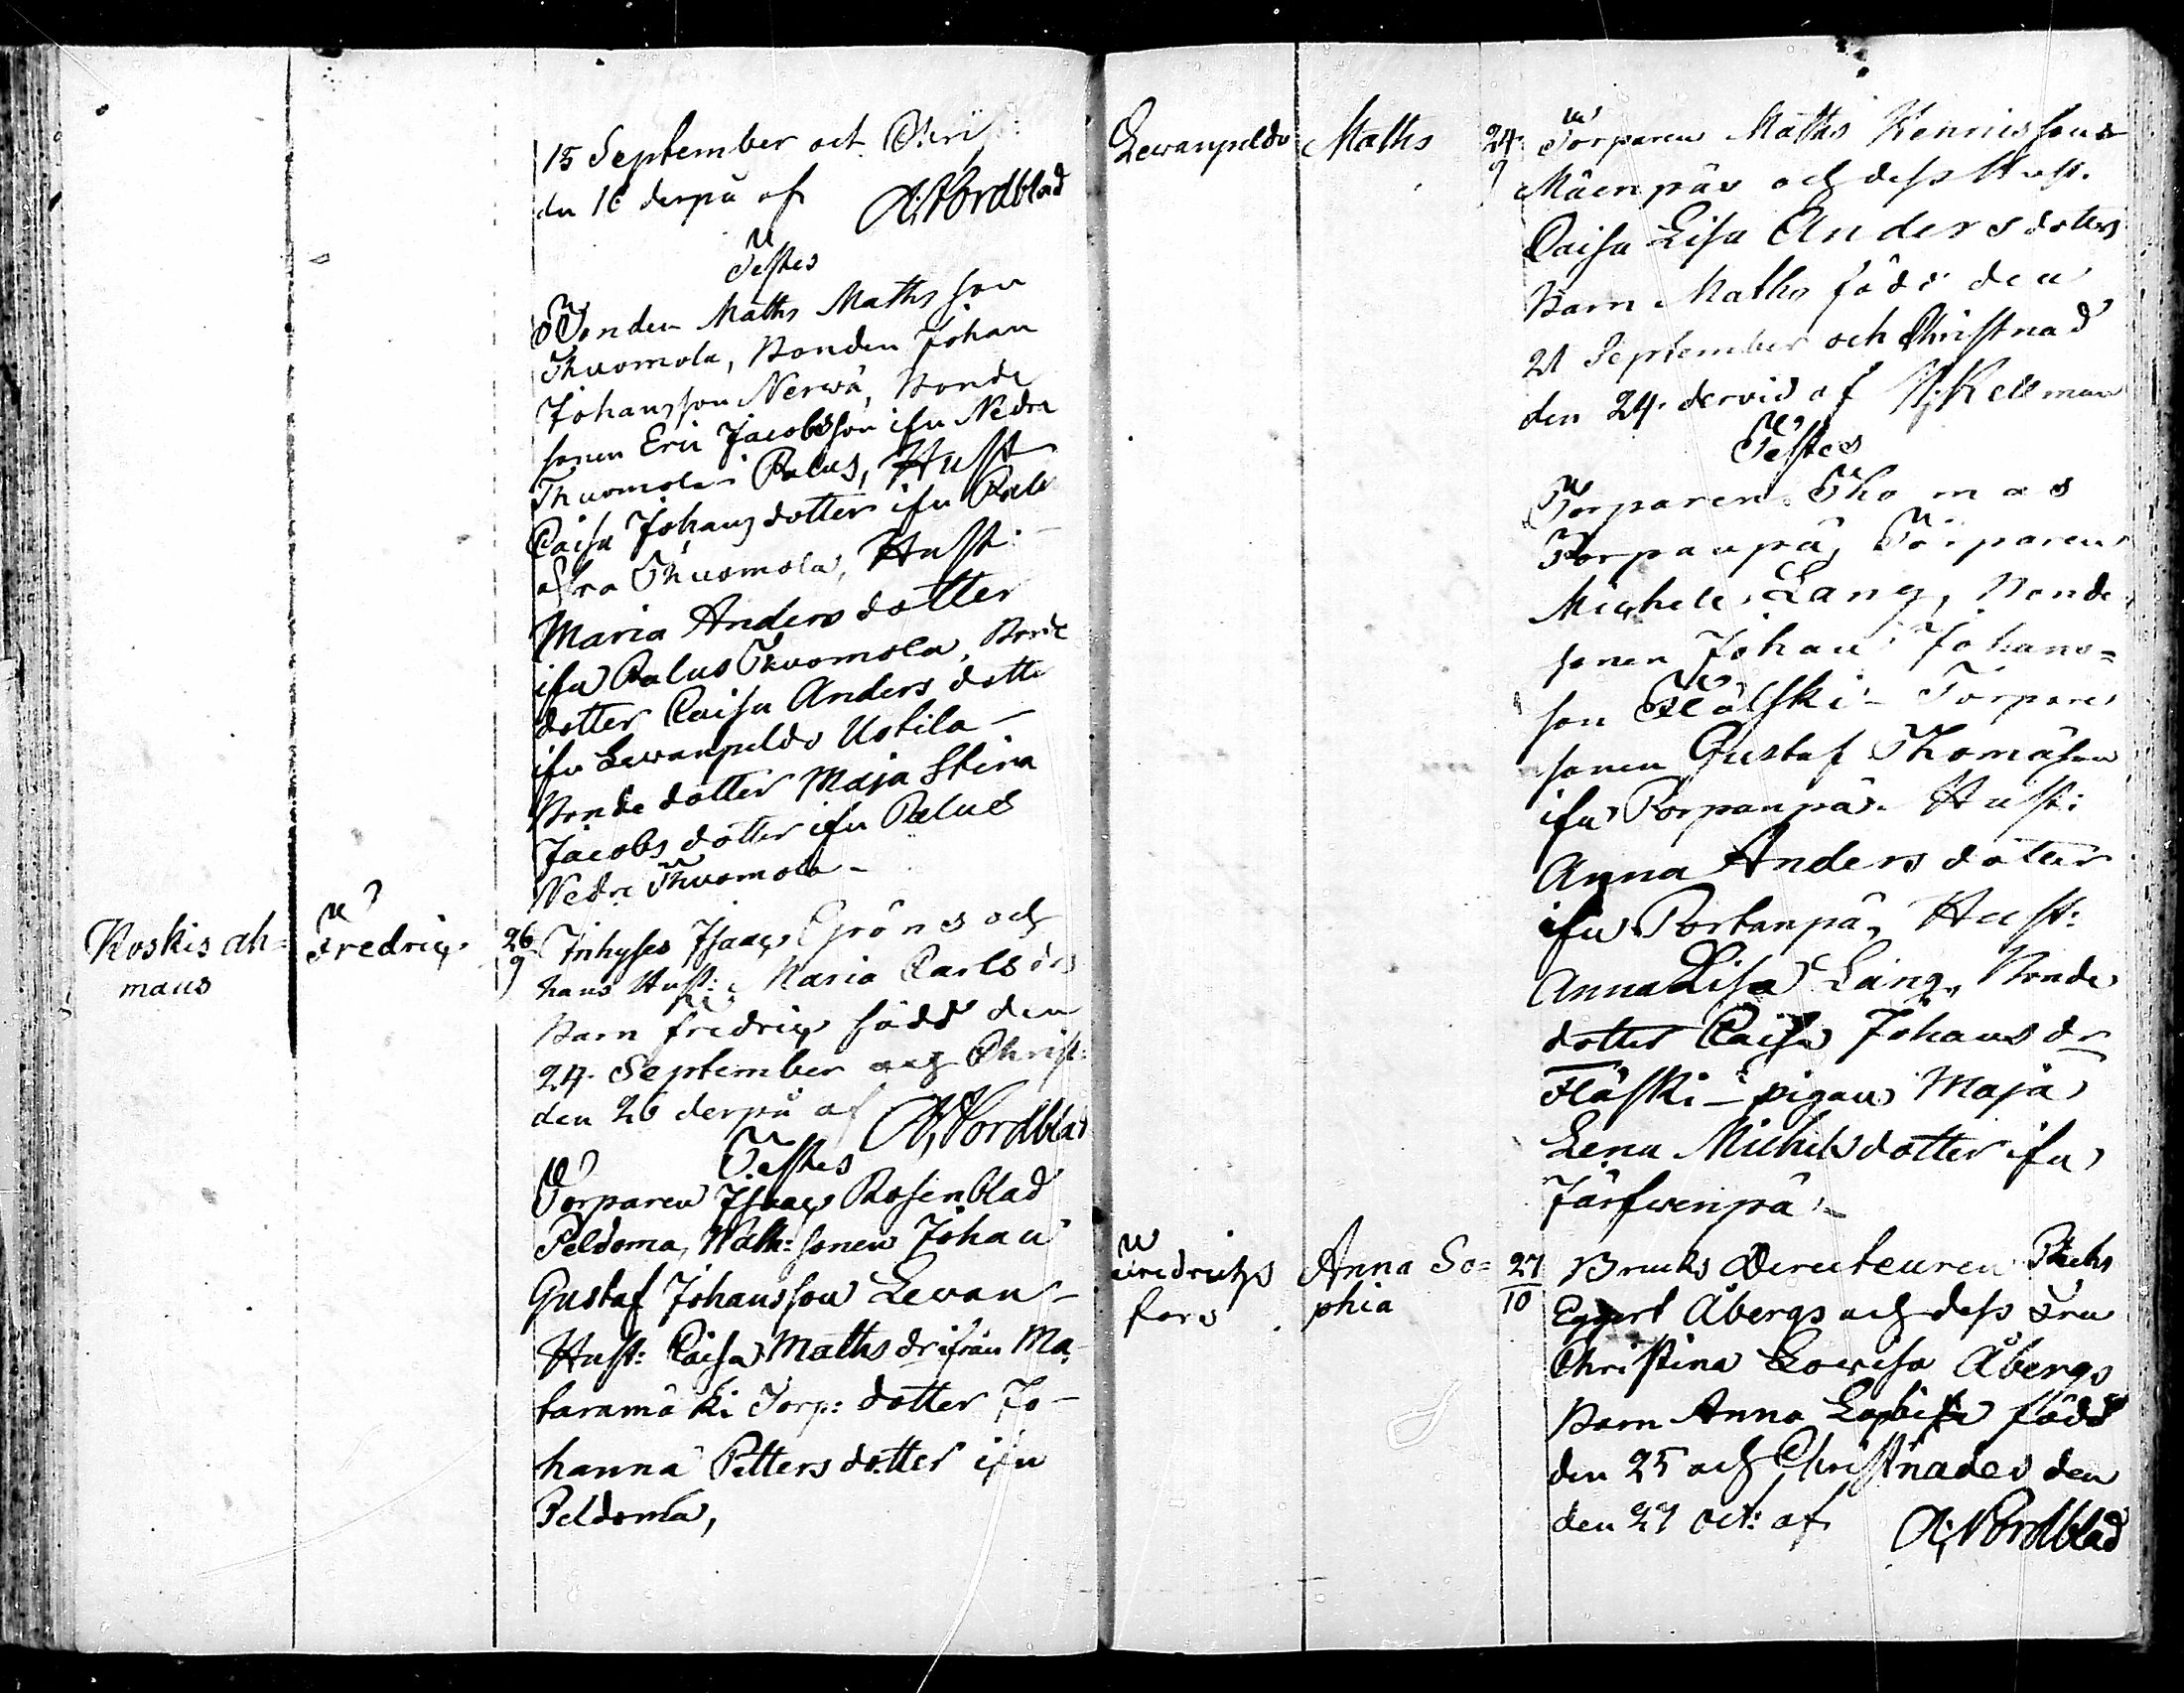 15 September och Chri:
den 16 derpå af A: Nordblad
Testes
Bonden Maths Mathsson
Thuomola, Bonden Johan
Johansson Nerwä, Bonde
sonen Eric Jacobsson ifn Nedra
Thuomola Palus, Hust
Caisa Johansdotter ifn Palu
öfra Thuomola, Hust:
Maria Andersdotter
ifn Palus Thuomola, Bonde
dotter Caisa Anders dotte
ifn Lewanpeldo Uotila
Bonde dotter Maja Stina
Jacobs dotter ifn Palus
Nedre Thuomola
Koskis ah=
maus
Fredric
26
9
Inhyses Isaac Gröns och
hans Hust: Maria Carlsdr
Barn fredric född den
24. September och Christ:
den 26 derpå af A: Nordblad
Testes
Torparen Isaac Rosenblad
Peldoma, sonen Johan
Gustaf Johansson Lewan-
Hust: Caisa Mathsdr ifrån Ma-
taramäki Torp: dotter Jo-
hanna Petters dotter ifn
Peldoma,
Lewanpeldo
Maths
24
9
Torparen Maths Hennissons
Mäenpää och dess Hust.
Caisa Lisa Anders dotters
Barn Maths född den
21 September och Christnad
den 24. dervid af Kellman
Testes
Torparen Thomas
Torpanpä, Torparen
Michele Lang, Bonde
sonen Johan Johans=
son Fläski - Torpare
sonen Gustaf Thomasson
ifn Porpanpä. Hust:
Anna Anders dotter
ifn Portanpä, Hust:
Anna Lisa Lang, Bonde
dotter Caisa Johans dr
Fläski - pigan Maja
Lena Michelsdotter ifn
Järfwenpä
Fredrichs
fors
Anna So=
phia
27
10
Bruks Directeuren
Åbergs och dess Fru
Christina Lowisa Åbergs
Barn Anna född
den 25 och Christnades den
den 27 Oct: af A: Nordblad